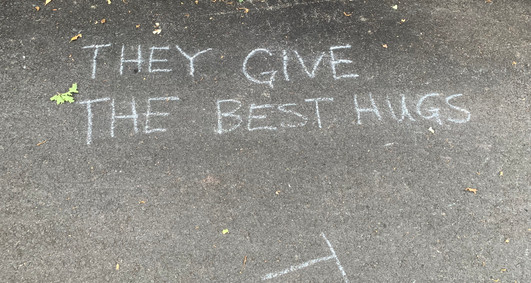 THEY GIVE
THE BEST HUGS